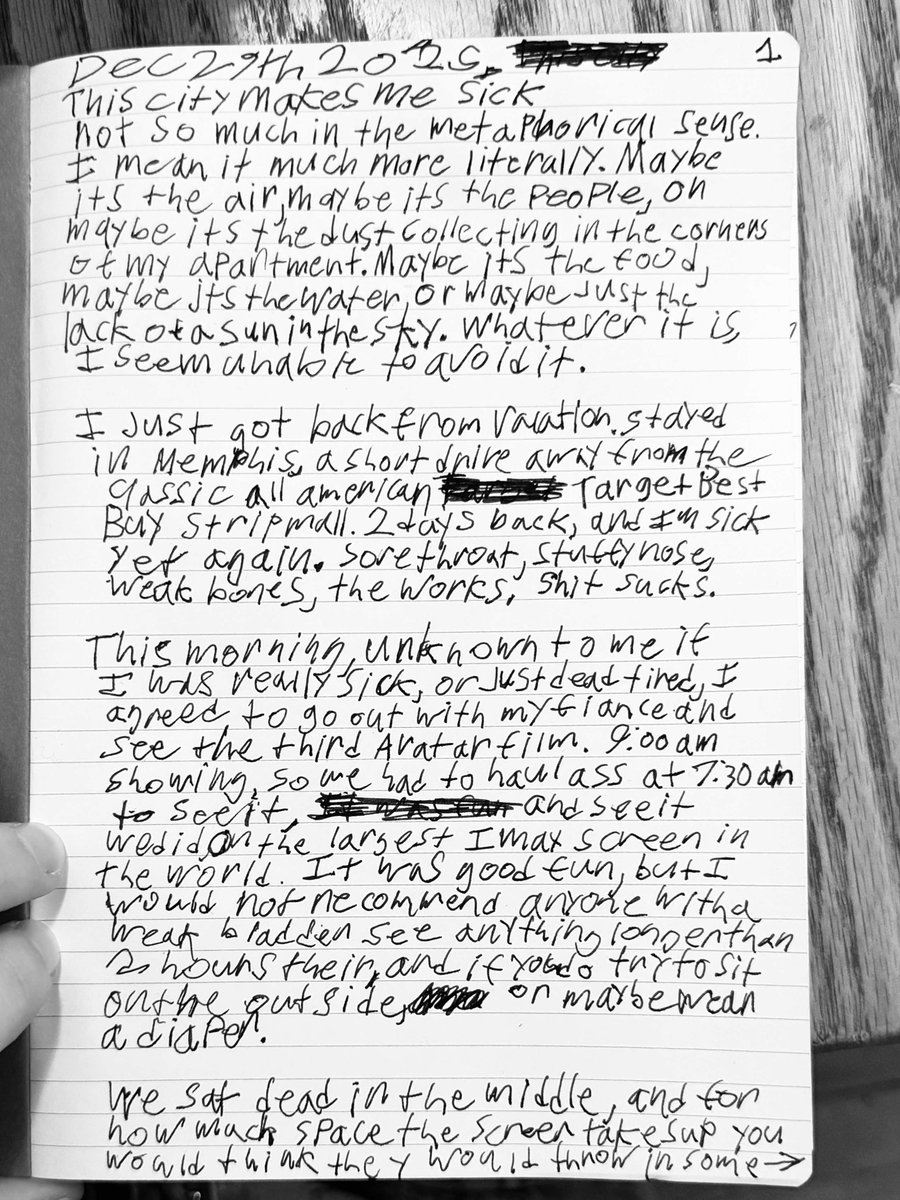 Dec 29th 2025. 1
This city makes me sick
not so much in the metaphorical sense.
I mean it much more literally. Maybe
its the air, maybe its the people, or
maybe its the dust collecting in the corners
of my apartment. Maybe its the food,
maybe its the water, or maybe just the
lack of a sun in the sky. Whatever it is,
I seem unable to avoid it.
I just got back from vacation. stayed
in Memphis, a short drive away from the
classic all american Target Best
Buy stripmall. 2 days back, and I'm sick
yet again. sore throat, stuffy nose,
weak bones, the works. shit sucks.
This morning, unknown to me if
I was really sick, or just dead tired, I
agreed to go out with my fiance and
see the third Avatar film. 9:00 am
showing, so we had to haul ass at 7:30 am
to see it, and see it
we did on the largest Imax screen in
the world. It was good fun, but I
would not recommend anyone with a
weak bladder see anything longer than
2 hours their, and if you do try to sit
on the outside, or maybe wear
a diaper.
We sat dead in the middle, and for
how much space the screen takes up you
would think they would throw in some →